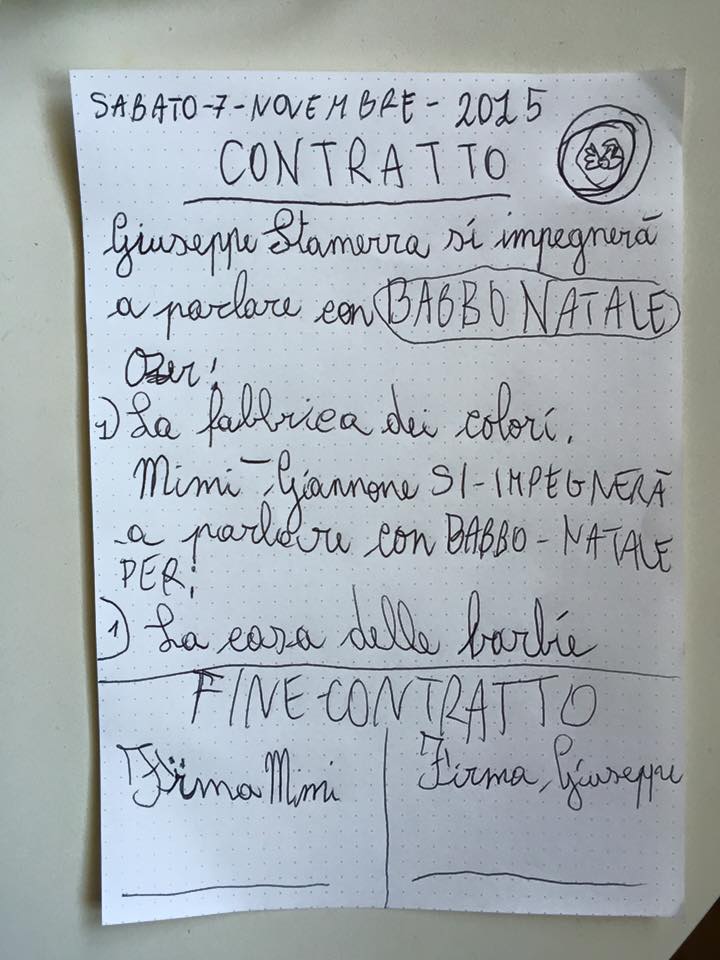 SABATO-7-NOVEMBRE-2015
CONTRATTO
Giuseppe Stamerra si impegnerà
a parlare con BABBO NATALE
1) La fabbrica dei colori.
Mimi-Giannone SI-IMPEGNERÀ
a parlare con BABBO-NATALE
PER:
1) La casa delle barbie
FINE-CONTRATTO
Firma Mimi
Firma, Giuseppe